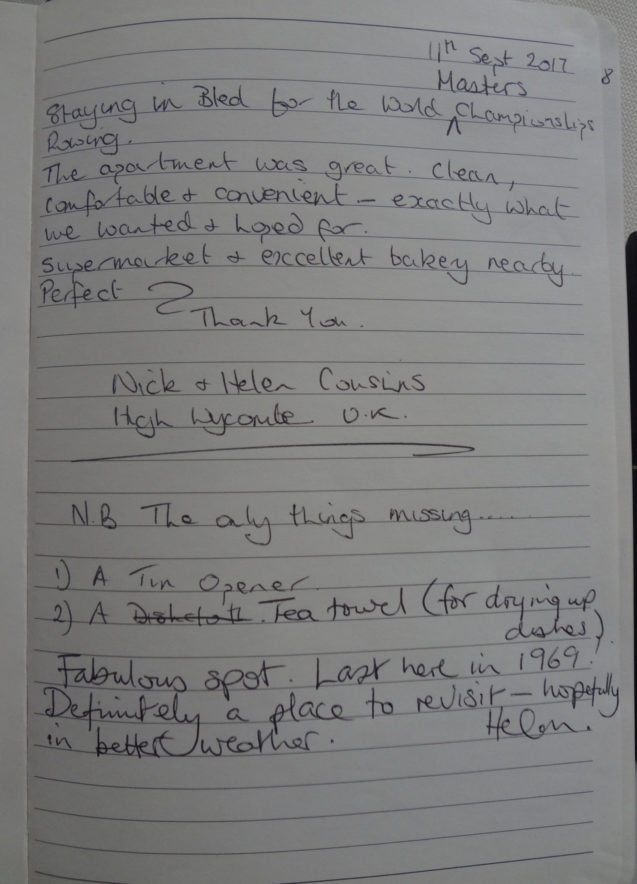 11th Sept 2017
8
Masters
Staying in Bled for the World ^ Championships
Rowing.
The apartment was great. Clean,
comfortable & convenient - exactly what
we wanted & hoped for.
Supermarket & excellent bakey nearby
Perfect
Thank You.
Nick & Helen Cousins
High Wycombe U.K.
N.B The only things missing.....
1) A Tin Opener
2) A Tea towel (for drying up
dishes).
Fabulous spot. Last here in 1969!
Definitely a place to revisit - hopefully
in better weather. Helen.